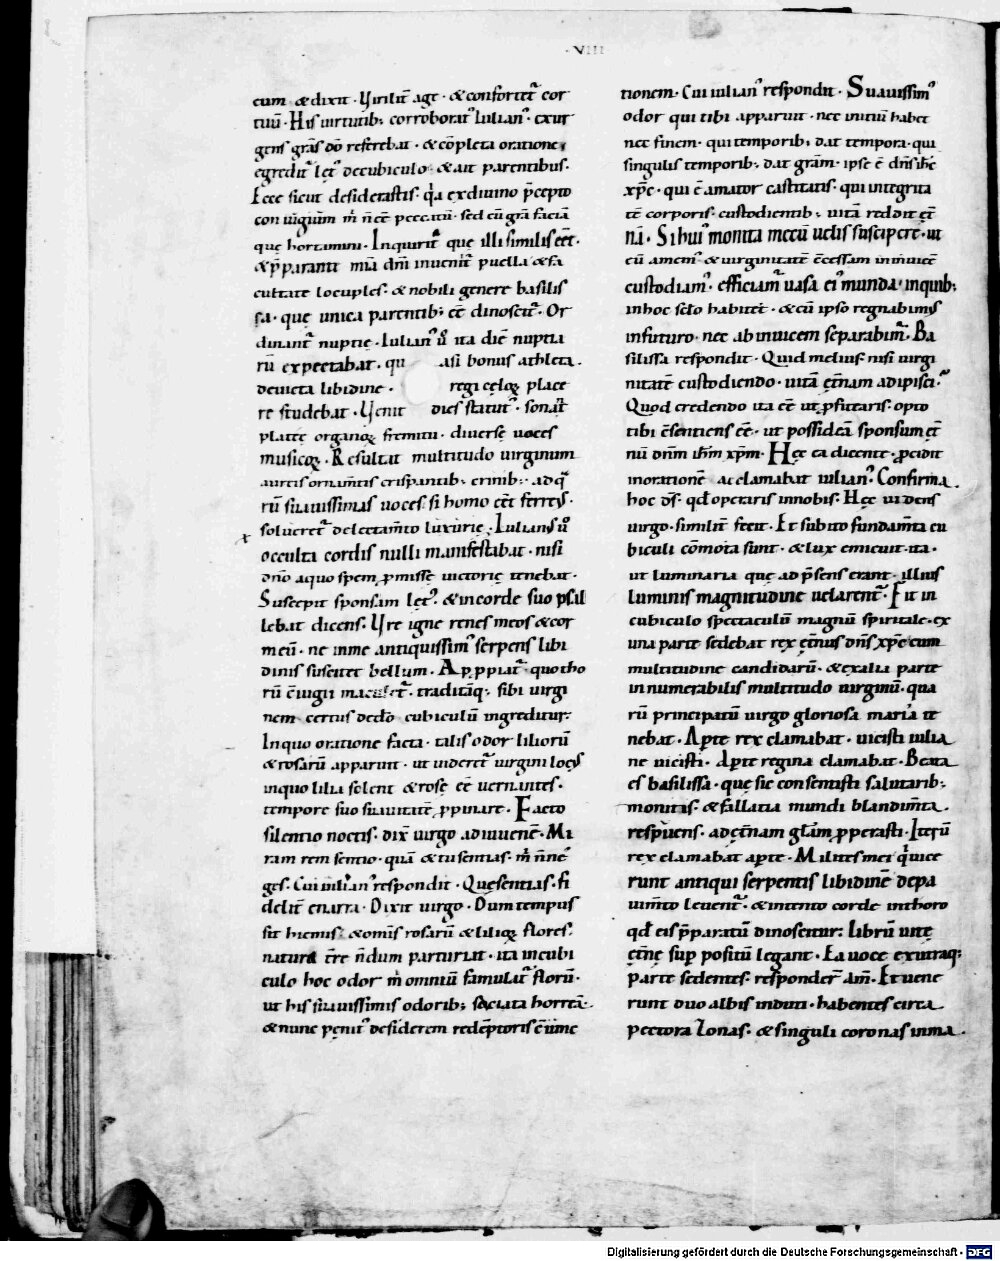 · VIII
cum & dixit · Virilit̄ age · & confortet̄ cor
tuū · His uirtutib; corroborat᾿ Iulian᾿ · exur
gens grās dō referebat · & cōpleta oratione,
egredit᾿ let᾿ de cubiculo · & ait parentibus ·
Ecce sicut desiderastis · q̇a ex diuino p̄cepto
con iugium m̄ n̄ ēē peccatū · sed cū grā faciā
que hortamini · Inquirit᾿ que illi similis eēt ·
& p̄paranti mīa dn̄i inuenit᾿ puella & fa
cultate locuples · & nobili genere basilis
sa · que unica parentib; eē dinoscit᾿ · Or
dinant᾿ nuptię · Iulian᾿ ů ita diē nuptia
rū expectabat · qu asi bonus athleta ·
deuicta libidine · regi cęloꝝ place
re studebat · Venit dies statut᾿ · sonat᾿
platee organoꝝ fremitu · diuerse uoces
musicoꝝ · Resultat multitudo uirginum
aureis ornam̄tis crispantib; crinib; · ad q᾿
rū suauissimas uoces · si homo eēt ferre᾿ ·
solueret᾿ delectam̄to luxurię · Iulian᾿ ů
occulta cordis nulli manifestabat · nisi
dn̄o a quo spem ꝓmisse uictorię tenebat ·
Suscepit sponsam let᾿ · & in corde suo psal
lebat dicens · Vre igne renes meos & cor
meū · ne in me antiquissim᾿ serpens libi
dinis suscitet bellum · Apꝓpiat᾿ quo tho
rū c̄iugii maculet᾿ · traditāq; sibi uirgi
nem certus de dō cubiculū ingreditur ·
In quo oratione facta · talis odor liliorū
& rosarū apparuit · ut uideret᾿ uirgini locus
in quo lilia solent & rose eē uernantes ·
tempore suo suauitatē ꝓpinare · Facto
silentio noctis · dix̄ uirgo ad iuuenē · Mi
ram rem sentio · quā & tu sentias · m̄ n̄ ne
ges · Cui iulian᾿ respondit · Que sentias · fi
delit̄ enarra · Dixit uirgo · Dum tempus
sit hiemis · & om̄is rosarū & lilioꝝ flores ·
natura t̄re n̄dum parturiat · ita in cubi
culo hoc odor m̄ omniū famulat᾿ florū ·
ut his suauissimis odorib; sociata horreā ·
& nunc penit᾿ desiderem redēptoris c̄iunc
tionem · Cui iulian᾿ respondit · Suauissim᾿
odor qui tibi apparuit · nec initiū habet
nec finem · qui temporib; dat tempora · qui
singulis temporib; dat grām · ipse ē dn̄s ih̄c
xp̄c · qui ē amator castitatis · qui integrita
tē corporis · custodientib; uitā reddit et̄
nā · Si hui᾿ monita mecū uelis suscipere · ut
eū amem᾿ & uirginitatē
custodiam᾿ · efficiam᾿ uasa ei᾿ munda · in quib;
in hoc sc̄lo habitet · & cū ipso regnabim᾿
in futuro · nec ab inuicem separabim᾿ · Ba
silissa respondit · Quid melius · nisi uirgi
nitatē custodiendo · uitā et̄nam adipisci ·
Quod credendo ita eē ut ꝓfitaris · opto
tibi c̄sentiens eē · ut possideā sponsum et̄
nū dn̄m ih̄m xp̄m · Hęc ea dicente · ꝓcidit
in orationē ac clamabat iulian᾿ · Confirma
hoc ds̄ · qd̄ operaris in nobis · Hęc uidens
uirgo · similit̄ fecit · Et subito fundam̄ta cu
biculi cōmota sunt · & lux emicuit · ita ·
ut luminaria quę ad p̄sens erant · illius
luminis magnitudine uelarent᾿ · Fit in
cubiculo spectaculū magnū spiritale · ex
una parte sedebat rex et̄nus dn̄s xp̄c cum
multitudine candidarū · & ex alia parte
innumerabilis multitudo uirginū · qua
rū principatū uirgo gloriosa maria te
nebat · A parte rex clamabat · uicisti iulia
ne uicisti · A parte regina clamabat · Beata
es basilissa · quę sic consentisti salutarib;
monitis · & fallatia mundi blandim̄ta
respuens · ad et̄nam glām ꝓperasti · Iterū
rex clamabat a parte · Milites mei q̇ uice
runt antiqui serpentis libidinē de pa
uim̄to leuent᾿ · & intento corde in thoro
qd̄ eis p̄paratū dinoscitur · librū uitę
et̄nę sup̱ positū legant · Ea uoce ex utraq;
parte sedentes · responder̄ am̄ · Et uene
runt duo albis induti · habentes circa
pectora zonas · & singuli coronas in ma
Digitalisierung gefördert durch die Deutsche Forschungsgemeinschaft · DFG